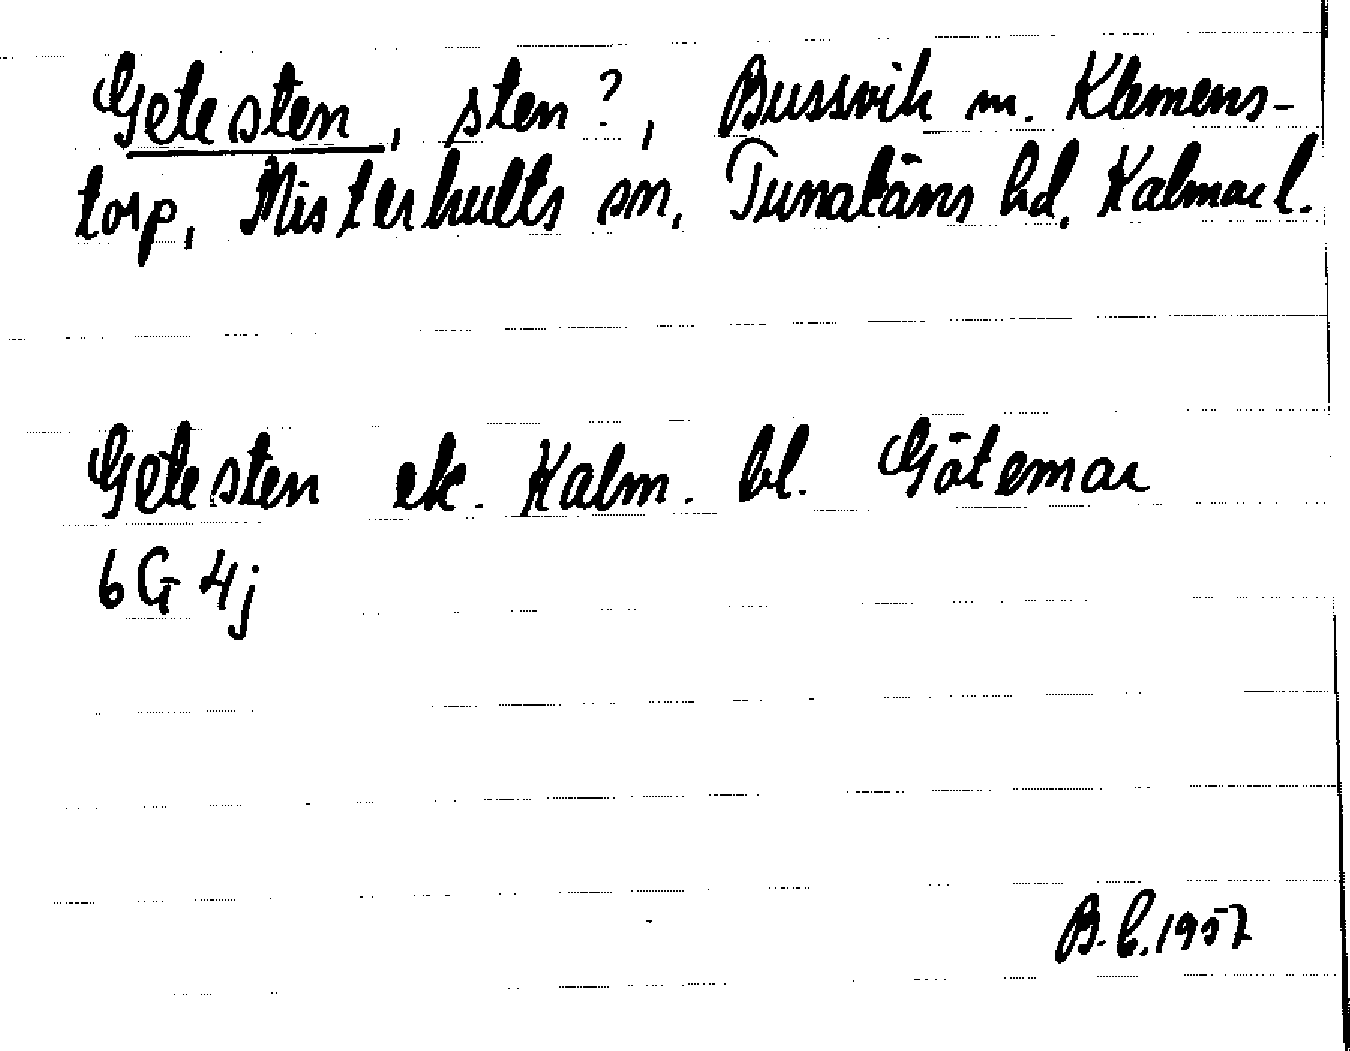 Getesten, sten?, Bussvik m. Klemens-
torp, Misterhults sn, Tunaläns hd. Kalmar l.
Getesten ek. Kalm. bl. Götemar
6G 4j
B. b. 1957